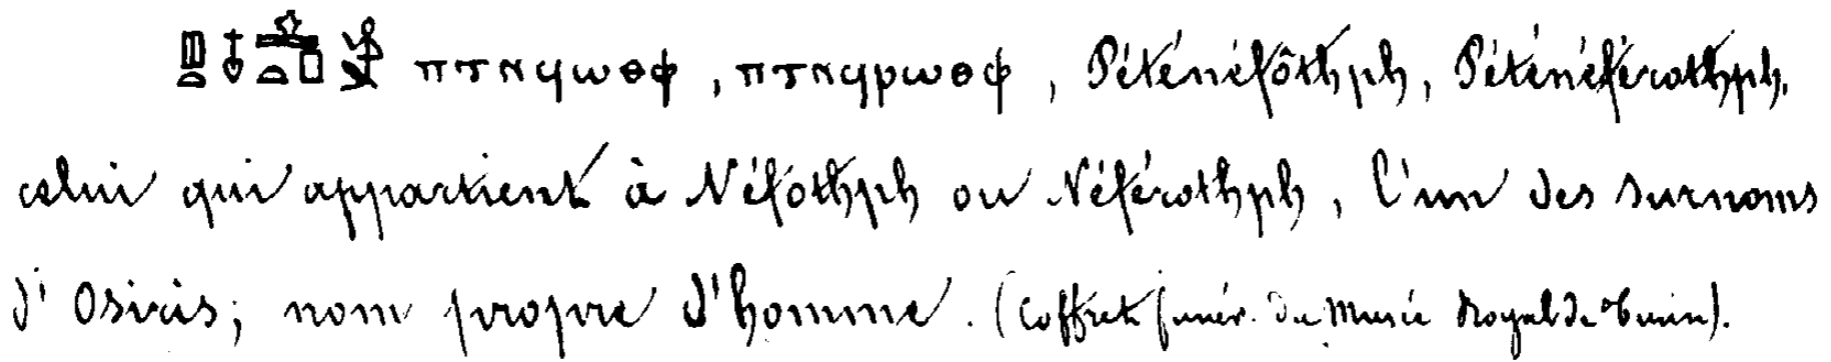 ⲡⲧⲛϥⲱⲑⲫ, ⲡⲧⲛϥⲣⲱⲑⲫ, Péténéfôthph, Péténéférothph,
celui qui appartient à Néfothph ou Néférothph, l'un des surnoms
d'Osiris; nom propre d'homme. (Coffret funér. du Musée Royal de Turin).